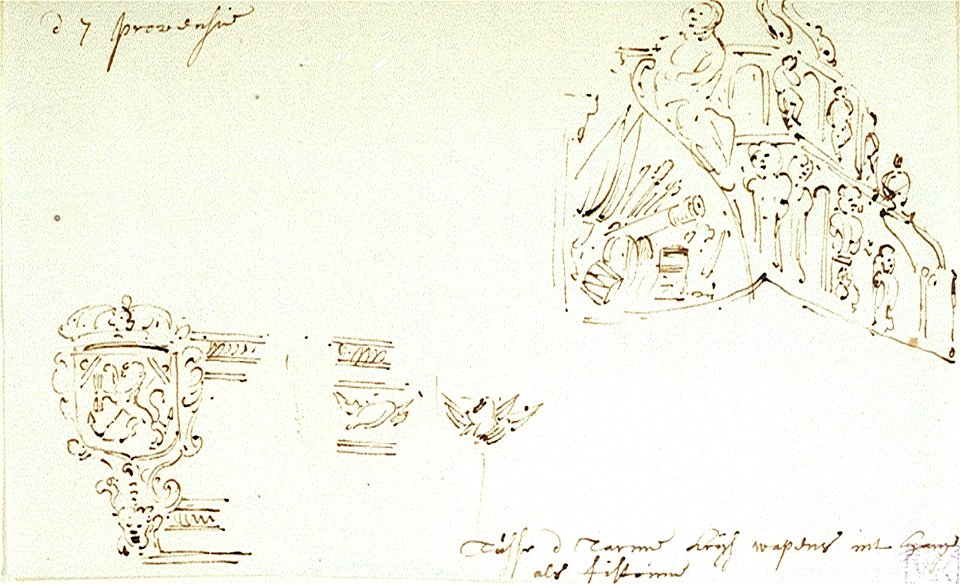 d 7 provensie
Tusse d Tarme krijs wapens int
als fistonne